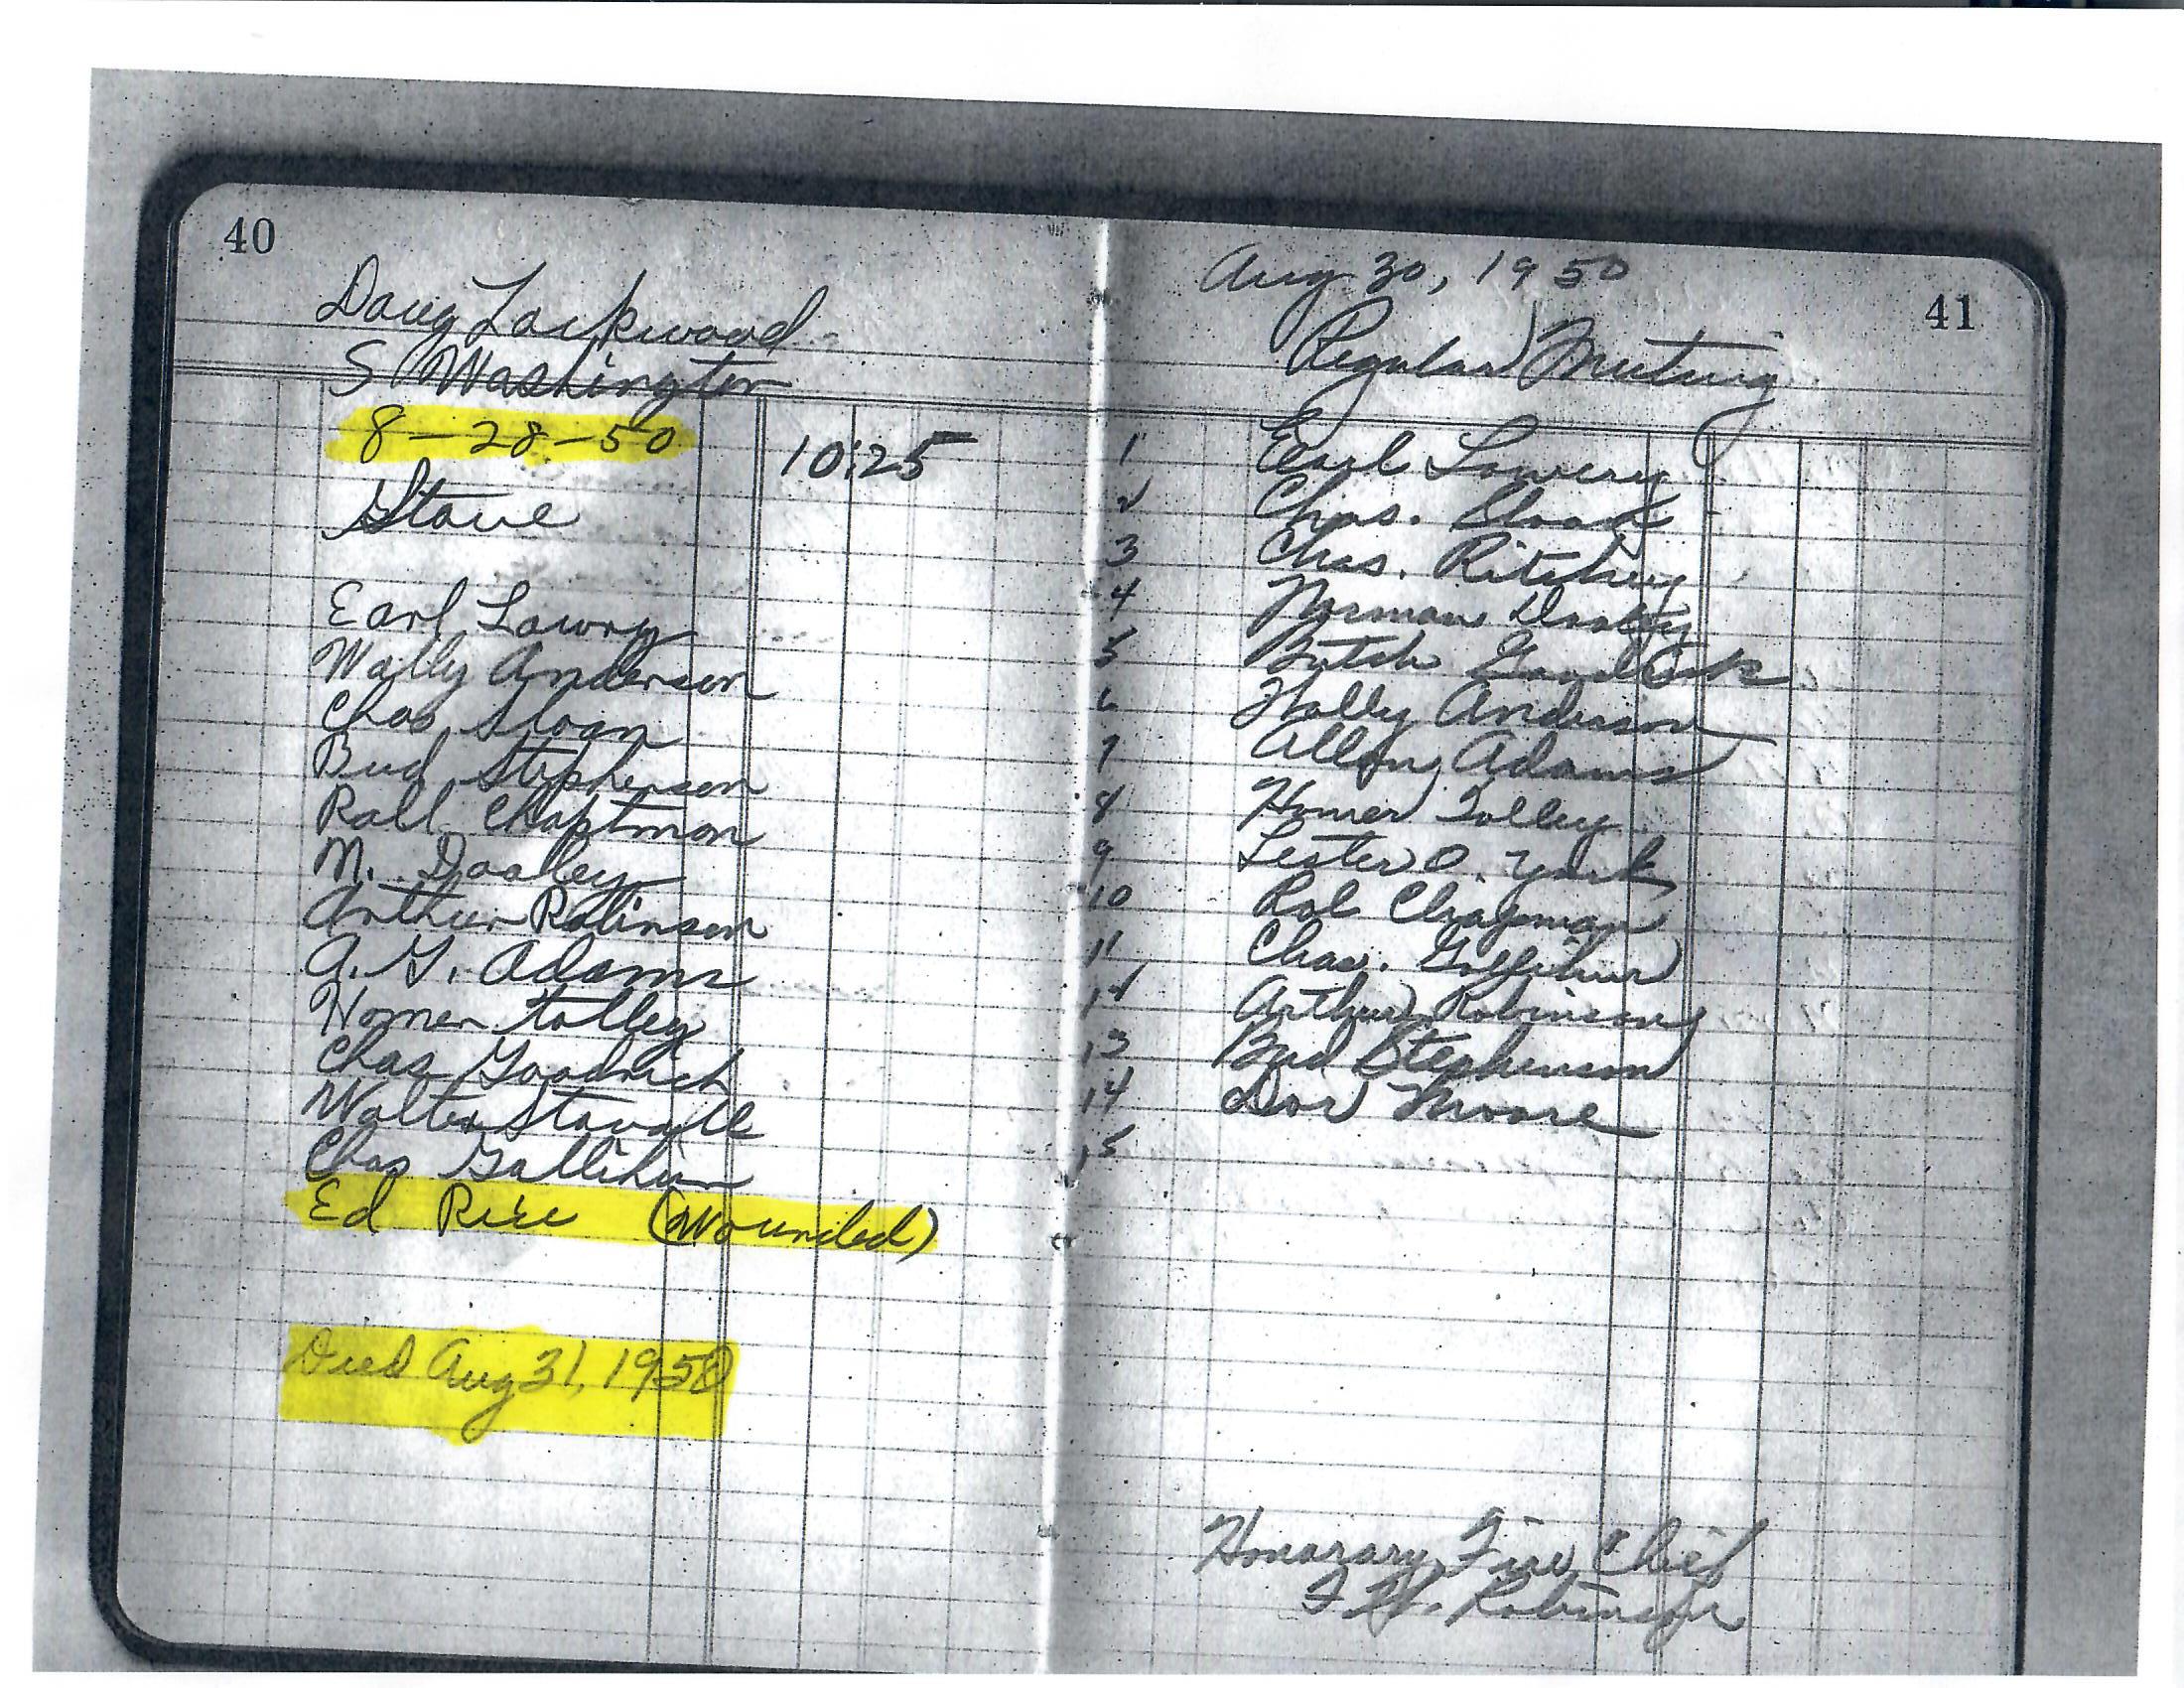 40
Doug Lockwood
S Washington
8-28-50 10:25
Stove
Earl Lowry
Wally Anderson
Chas Sloan
Bud Stephenson
Roll Chaptman
M. Dooley
Arthur Robinson
A. G. Adams
Homer Tolley
Chas Goodrich
Walter Stovall
Chas Gallihim
Ed Rice (Wounded)
Died Aug 31, 1950
41
Aug 30, 1950
Regular Meeting
1 Earl Lowery
2 Chas. Sloan
3 Chas. Ritchey
4 Norman Dooley
5 Butch
6 Wally Anderson
7 Allen Adams
8 Homer Tolley
9 Lester O. York
10 Rol Chapman
11 Chas.
12 Arthur Robinson
13 Bud Stephenson
14 Don Moore
15
Honarary Fire Chief
F. W. Robinson